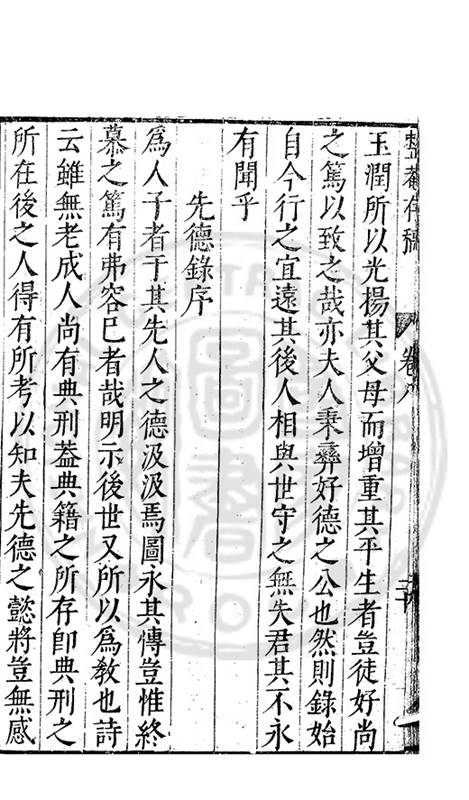 整菴存稿 卷八 二十
玉潤所以光揚其父母而增重其平生者豈徒好尚
之篤以致之哉亦夫人秉彞好德之公也然則錄始
自今行之宜遠其後人相與世守之無失君其不永
有聞乎
先德錄序
為人子者于其先人之德汲汲焉圖永其傳豈惟終
慕之篤有弗容已者哉明示後世又所以為敎也詩
云雖無老成人尚有典刑蓋典籍之所存卽典刑之
所在後之人得有所考以知夫先德之懿將豈無感